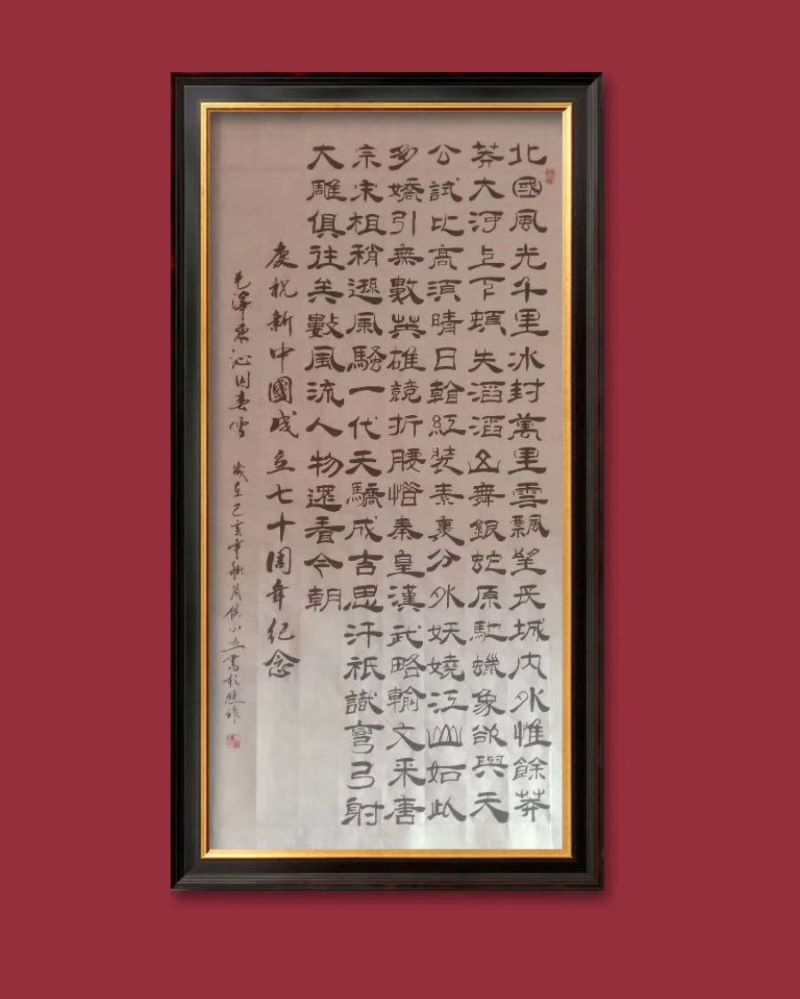 北國風光千里冰封萬里雪飄望長城内外惟餘莽
莽大河上下頓失滔滔山舞銀蛇原馳蠟象欲與天
公試比高須晴日看紅裝素裹分外妖嬈江山如此
多嬌引無數英雄競折腰惜秦皇漢武略輸文采唐
宗宋祖稍遜風騷一代天驕成吉思汗祇識彎弓射
大雕俱往矣數風流人物還看今朝
慶祝新中國成立七十周年紀念
毛澤東沁园春雪 歲在己亥年秋月侯小五書於焦作